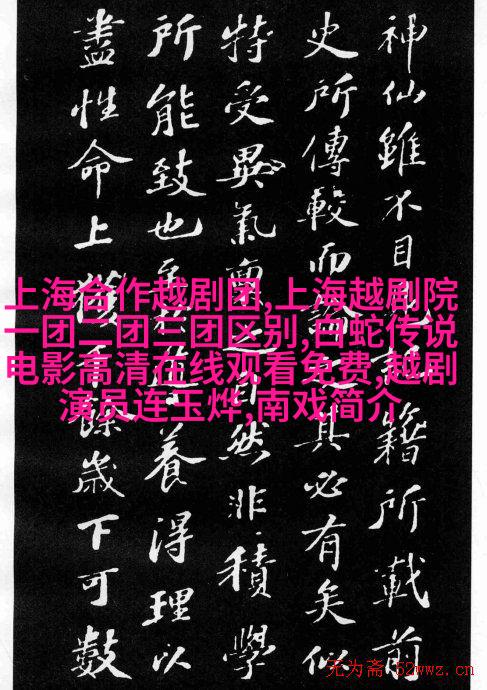 神仙雖不目見記籍所載前
史所傳較而論之其必有矣似
特受異氣稟之自然非積學
所能致也至於導養得理以
盡性命上獲千餘歲下可數
上海合作越剧团,上海越剧院
一团二团三团区别,白蛇传说
电影高清在线观看免费,越剧
演员连玉烨,南戏简介
无为斋·52wwz.cn